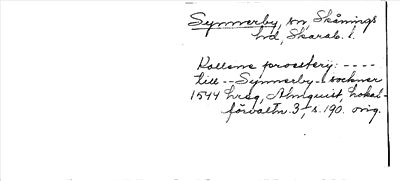 Synnerby, sn, Skånings
hd, Skarab. l.
Kollens prosteri: ----
till -- Synnerby -- socknar
1544 hrsg, Almquist, Lokal-
förvaltn. 3, s. 190. orig.